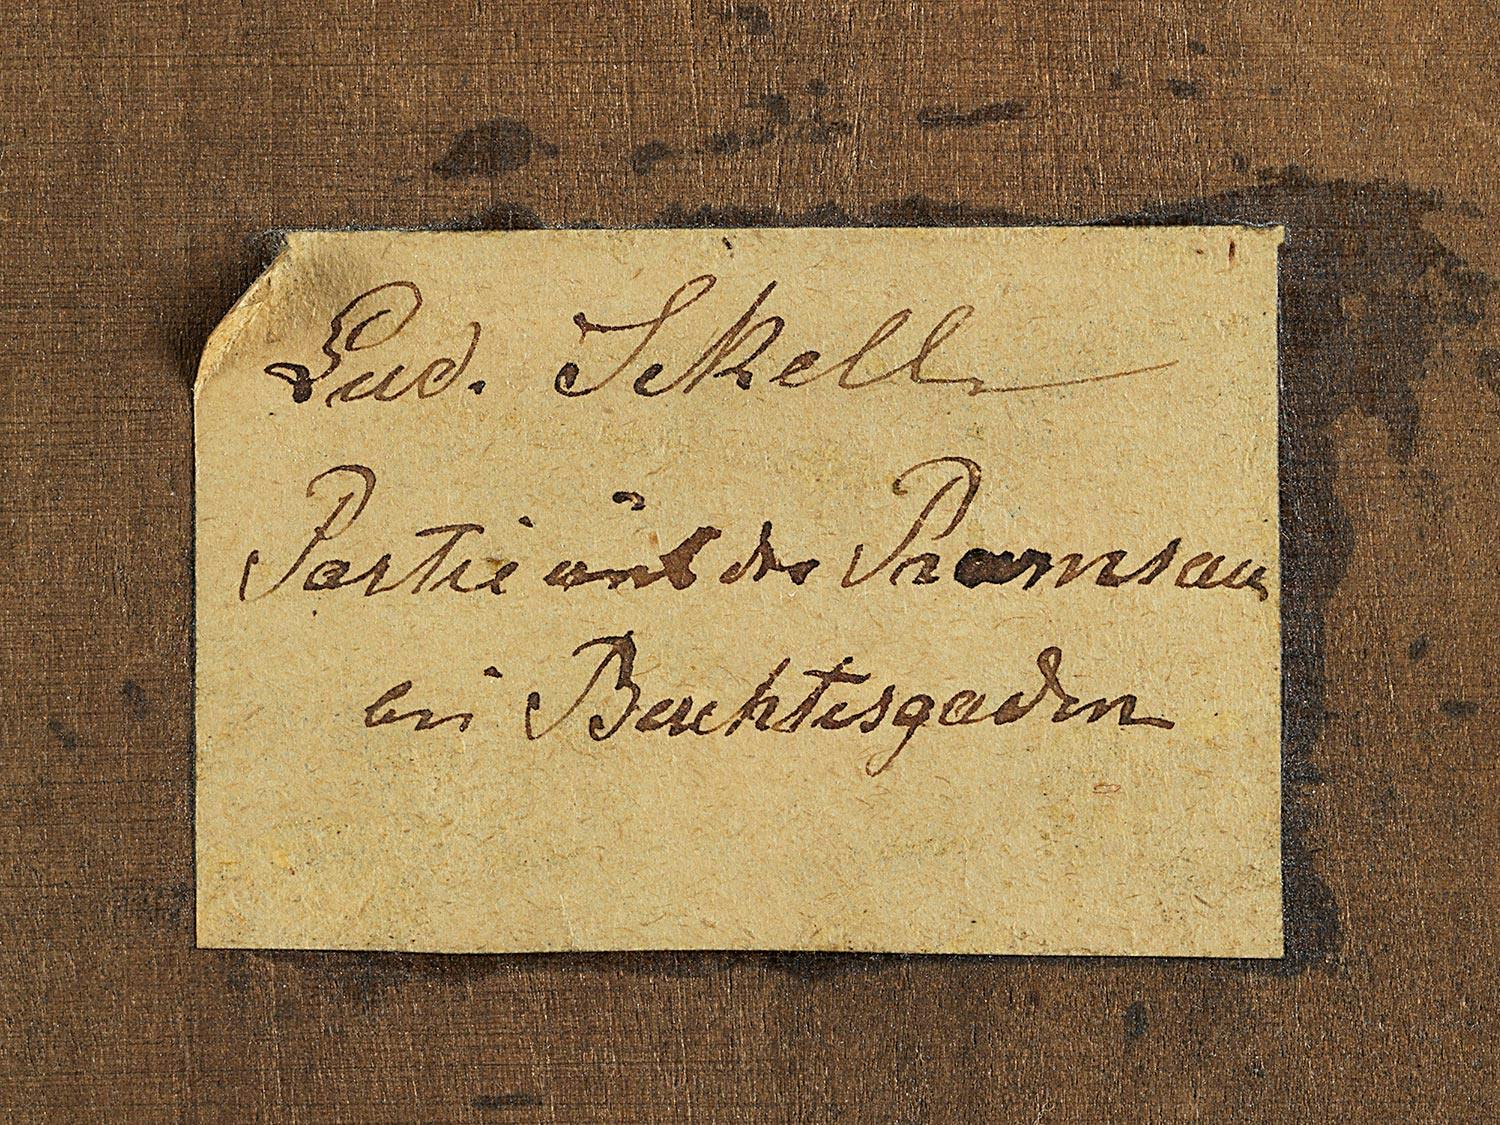 Lud. Skell
Partie aus der Ramsau
bei Berchtesgaden